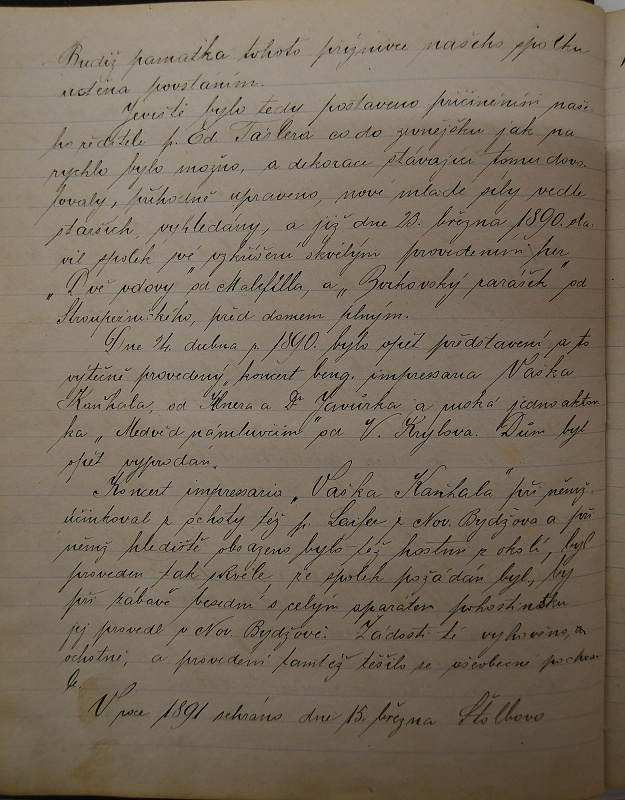 Budiž památka tohoto příznivce našeho spolku
uctěna povstáním.
Jeviště bylo tedy postaveno přičiněním naše-
ho ředitele p. Ed. Táslera co do zevnějšku jak na
rychlo bylo možno, a dekorace stávající tomu dovo-
lovaly, příhodně upraveno, nové mladé síly vedle
starších, vyhledány, a již dne 23. března 1890. sla-
vil spolek své vzkříšení skvělým provedením her
„Dvě vdovy" od Malefilla, a „Zvíkovský rarášek" od
Stroupežnického, před domem plným.
Dne 24. dubna r 1890. bylo opět představení a to
výtečně provedený „koncert beng. impressaria Vaška
Kaňhala, od Hnera a Dr Javůrka a ruská jednoaktov-
ka „Medvěd námluvčím" od V. Krylova. Dům byl
opět vyprodán.
Koncert impressaria „Vaška Kaňhala" při němž
účinkoval z ochoty též p. Leifer z Nov. Bydžova a při
němž hlediště obsazeno bylo též hostmi z okolí, byl
proveden tak skvěle, že spolek požádán byl, by
při zábavě besední s celým aparátem pohostinsku
jej provedl v Nov. Bydžově. Žádosti té vyhověno,
ochotně, a provedení tamtéž těšilo se všeobecné pochva-
le.
V roce 1891 sehráno dne 15. března Štolbovo